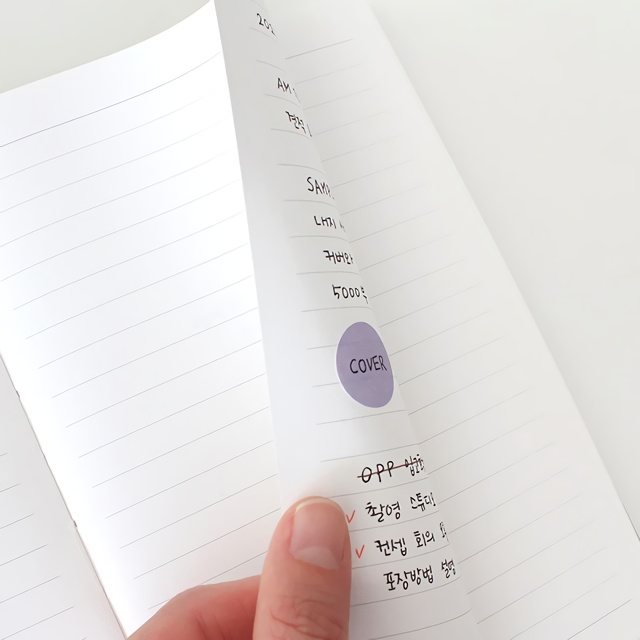 202
AM
견적
SAMP
내지
커버와
5000
COVER
OPP
촬영 스튜디오
컨셉 회의
포장방법 설명